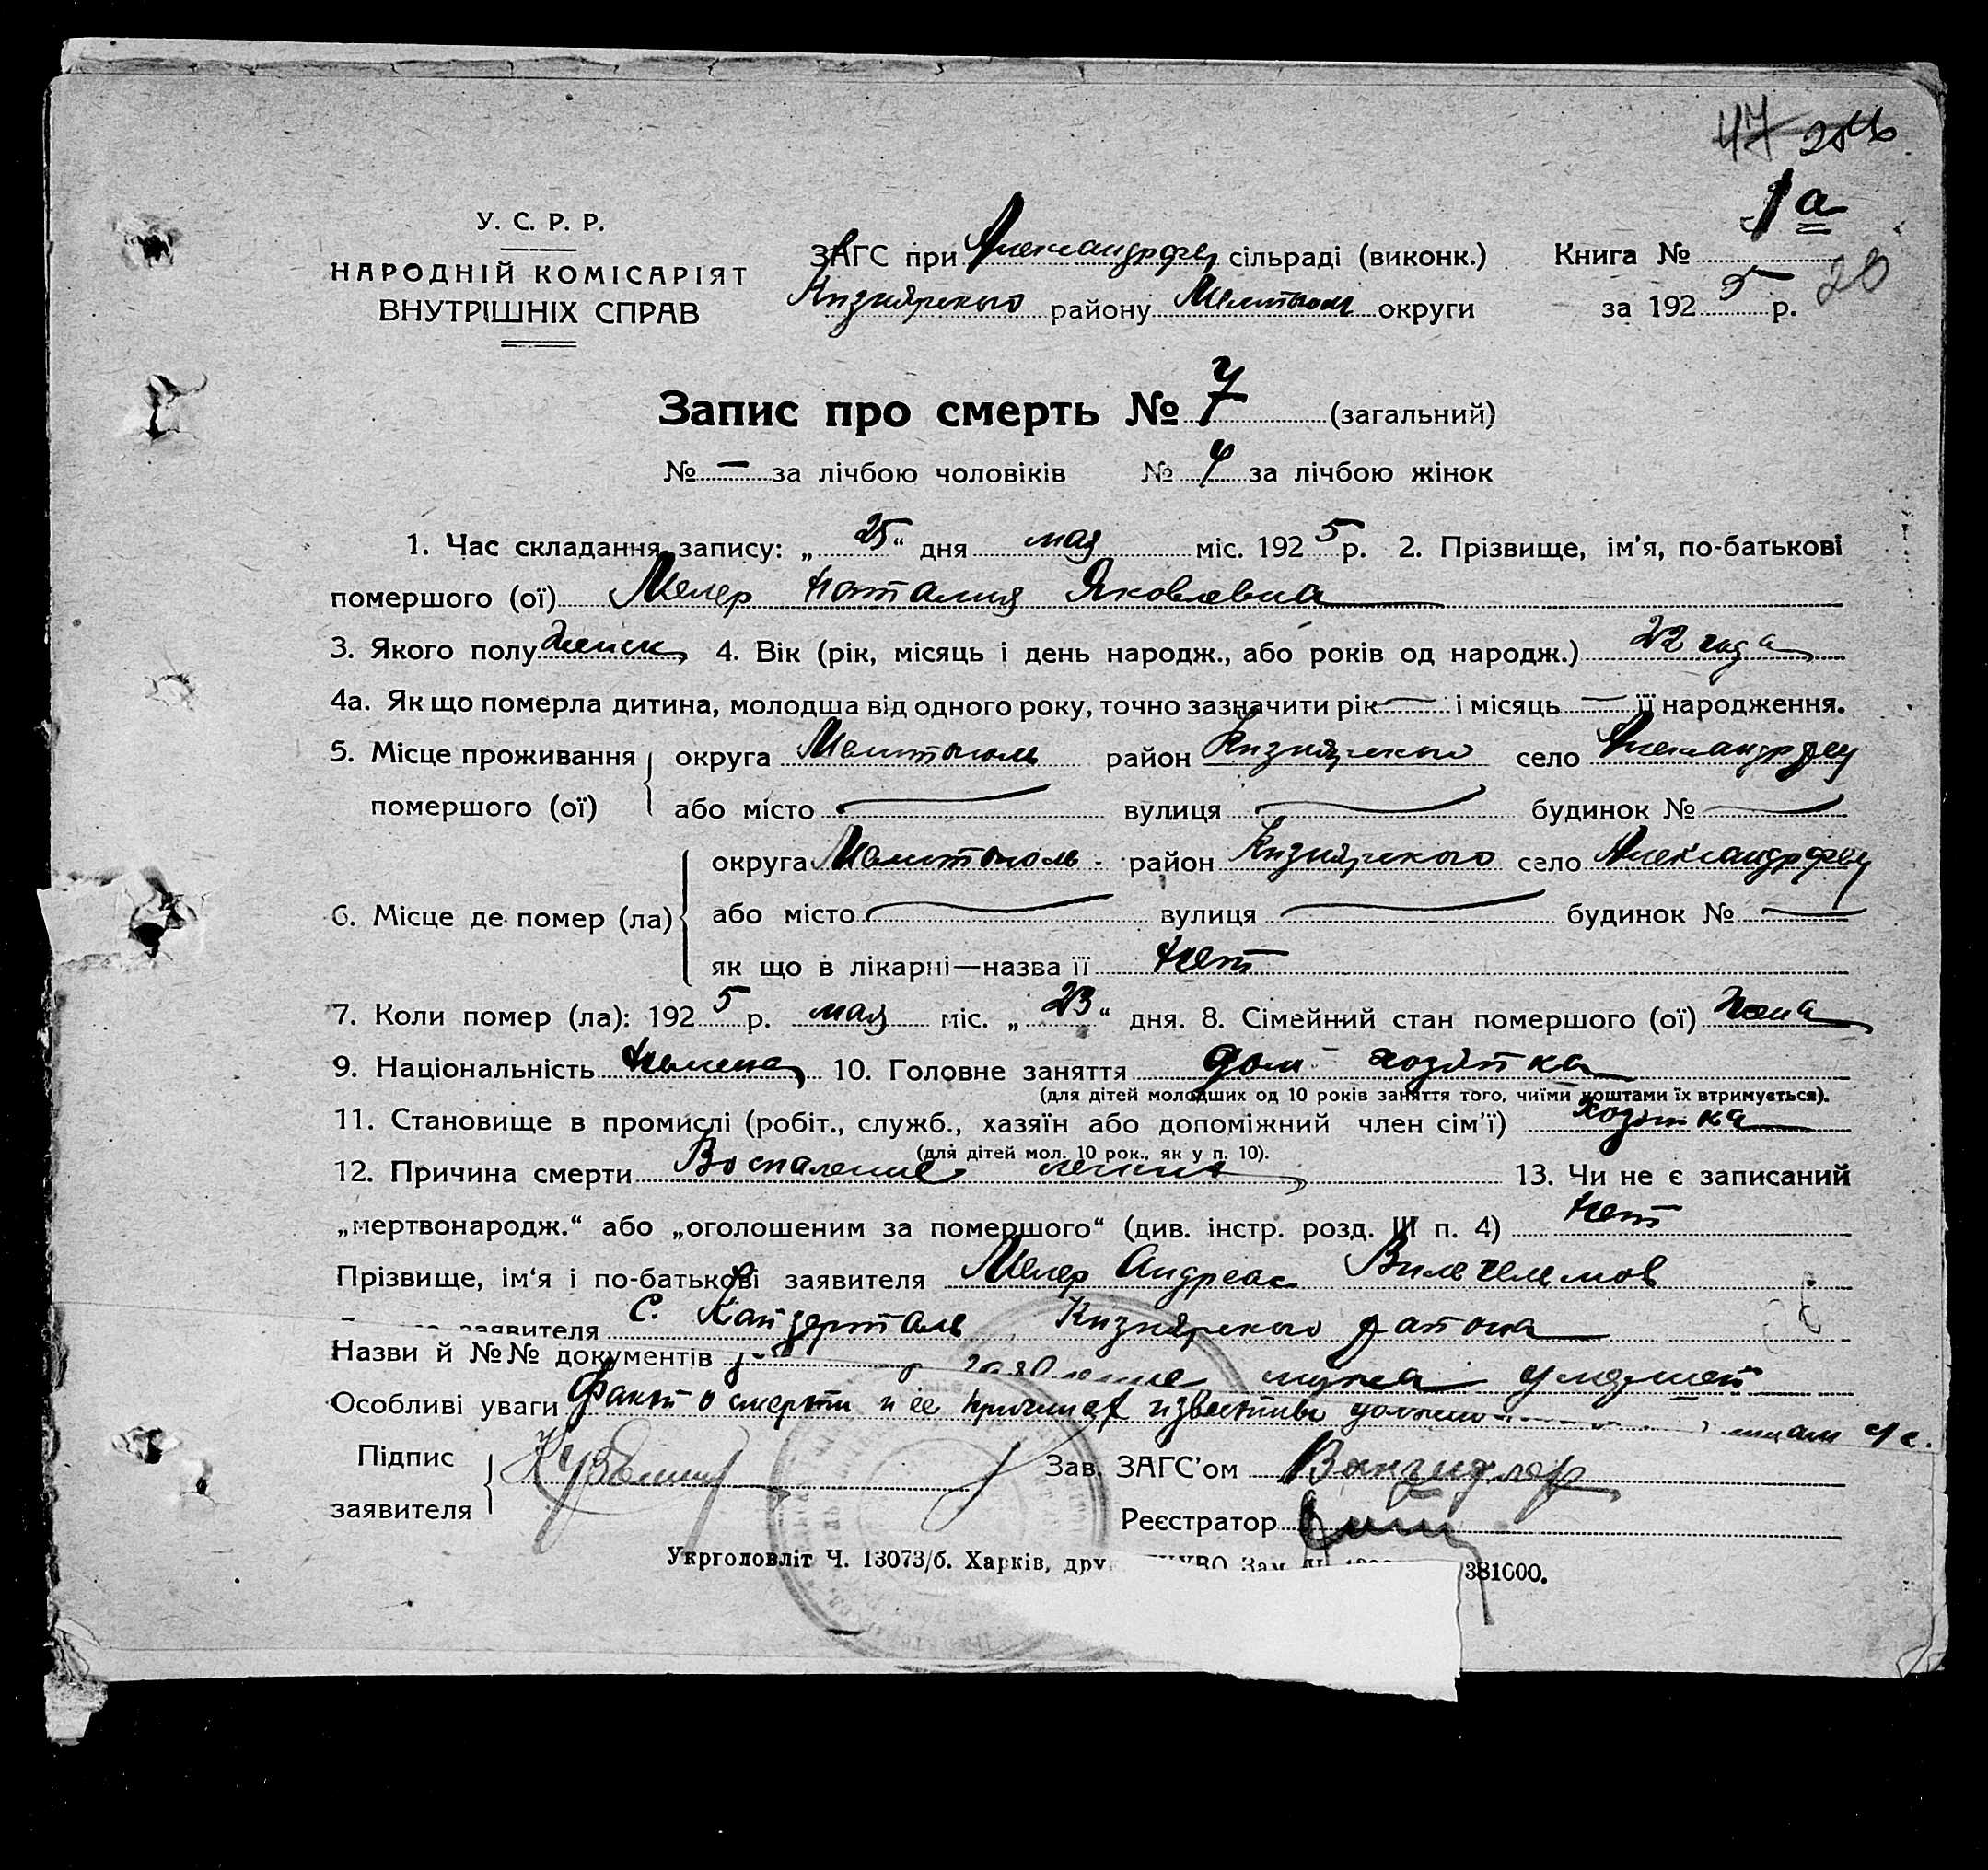 47 
1а
У. С. Р. Р.
НАРОДНІЙ КОМІСАРІЯТ
ВНУТРІШНІХ СПРАВ
ЗАГС при Александрфел сільраді (виконк.)
Кизиярского району Мелитопол округи
Книга №
за 192 5 р. 20
Запис про смерть № 7 (загальний)
№ — за лічбою чоловіків № 4 за лічбою жінок
1. Час складання запису: „ 25 “ дня мая міс. 192 5 р. 2. Прізвище, ім’я, по-батькові
помершого (ої) Мелер Наталия Яковлевна
3. Якого полу женск 4. Вік (рік, місяць і день народж., або років од народж.) 22 года
4а. Як що померла дитина, молодша від одного року, точно зазначити рік — і місяць — її народження.
5. Місце проживання округа Мелитополь район Кизиярского село Александрфел
помершого (ої) або місто — вулиця — будинок № —
округа Мелитополь район Кизиярского село Александрфел
6. Місце де помер (ла) або місто — вулиця — будинок № —
як що в лікарні—назва її Нет
7. Коли помер (ла): 192 5 р. мая міс. „ 23 “ дня. 8. Сімейний стан помершого (ої) жена
9. Національність Немка 10. Головне заняття дом хозяйка
(для дітей молодших од 10 років заняття того, чиїми коштами їх втримується).
11. Становище в промислі (робіт., служб., хазяїн або допоміжний член сім’ї) хозяйка
(для дітей мол. 10 рок., як у п. 10).
12. Причина смерти Воспаление легких 13. Чи не є записаний
„мертвонародж.“ або „оголошеним за помершого“ (див. інстр. розд. III п. 4) Нет
Прізвище, ім‘я і по-батькові заявителя Мелер Андреас Вильгельмов
заявителя с. Кайзерталь Кизиярского района
Назви й №№ документів заявление мужа умершей
Особливі уваги Факт о смерти и ее причинах известны
Підпис
заявителя
Зав. ЗАГС’ом
Реєстратор
Укрголовліт Ч. 13073/б. Харків, дру. Зам. 381000.